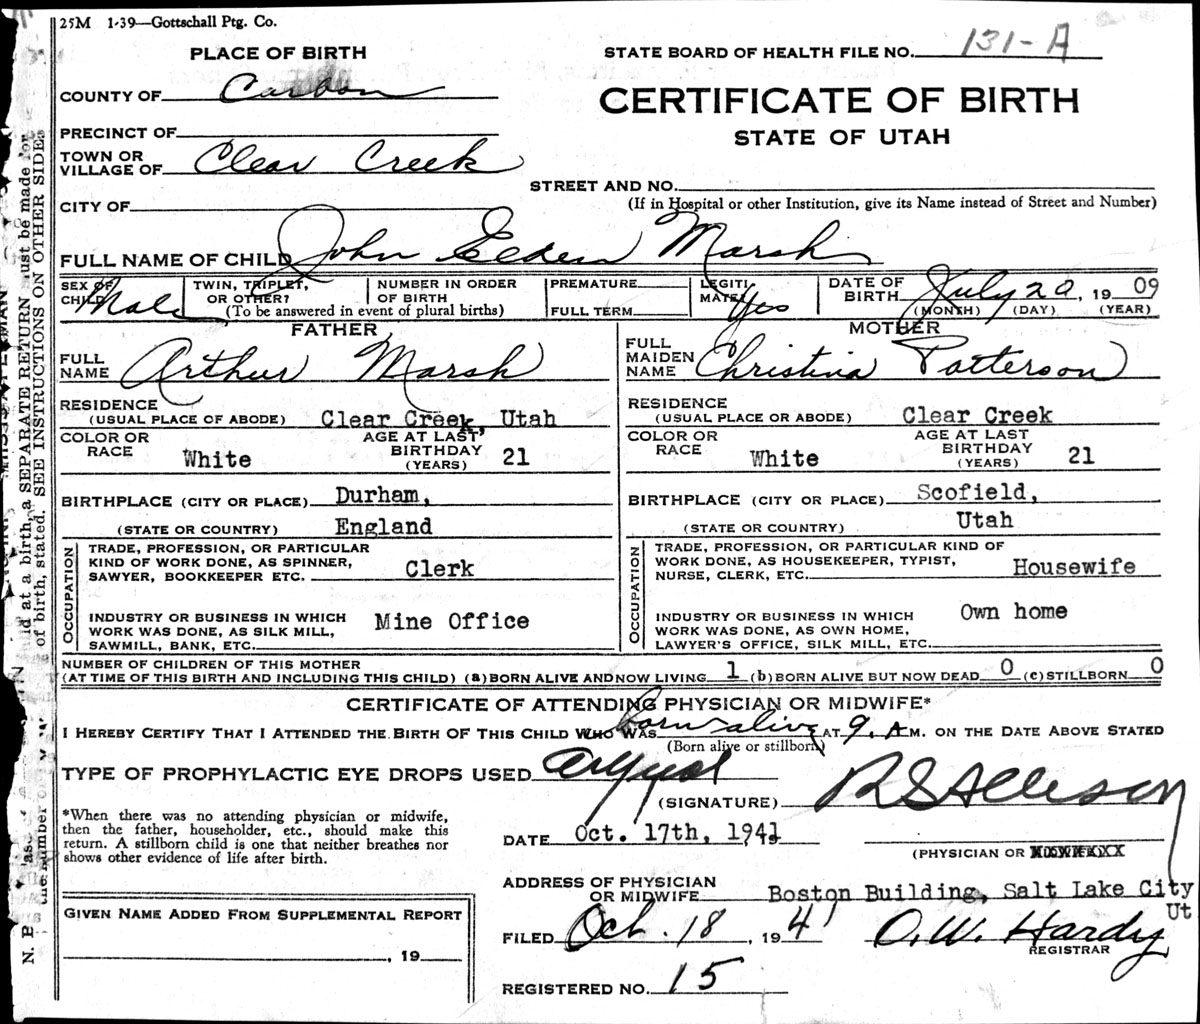 25M 1-39—Gottschall Ptg. Co.
PLACE OF BIRTH
STATE BOARD OF HEALTH FILE NO. 131-A
COUNTY OF Carbon
CERTIFICATE OF BIRTH
STATE OF UTAH
PRECINCT OF
TOWN OR VILLAGE OF Clear Creek
STREET AND NO.
(If in Hospital or other Institution, give its Name instead of Street and Number)
CITY OF
FULL NAME OF CHILD John Elden Marsh
SEX OF CHILD Male
TWIN, TRIPLET, OR OTHER?
NUMBER IN ORDER OF BIRTH
(To be answered in event of plural births)
PREMATURE
FULL TERM
LEGITIMATE? Yes
DATE OF BIRTH July 20, 1909
(MONTH) (DAY) (YEAR)
FATHER
FULL NAME Arthur Marsh
RESIDENCE (USUAL PLACE OF ABODE) Clear Creek, Utah
COLOR OR RACE White
AGE AT LAST BIRTHDAY (YEARS) 21
BIRTHPLACE (CITY OR PLACE) Durham,
(STATE OR COUNTRY) England
OCCUPATION
TRADE, PROFESSION, OR PARTICULAR
KIND OF WORK DONE, AS SPINNER,
SAWYER, BOOKKEEPER ETC. Clerk
INDUSTRY OR BUSINESS IN WHICH
WORK WAS DONE, AS SILK MILL,
SAWMILL, BANK, ETC. Mine Office
MOTHER
FULL MAIDEN NAME Christina Patterson
RESIDENCE (USUAL PLACE OR ABODE) Clear Creek
COLOR OR RACE White
AGE AT LAST BIRTHDAY (YEARS) 21
BIRTHPLACE (CITY OR PLACE) Scofield,
(STATE OR COUNTRY) Utah
OCCUPATION
TRADE, PROFESSION, OR PARTICULAR KIND OF
WORK DONE, AS HOUSEKEEPER, TYPIST,
NURSE, CLERK, ETC. Housewife
INDUSTRY OR BUSINESS IN WHICH
WORK WAS DONE, AS OWN HOME,
LAWYER'S OFFICE, SILK MILL, ETC. Own home
NUMBER OF CHILDREN OF THIS MOTHER
(AT TIME OF THIS BIRTH AND INCLUDING THIS CHILD) (a) BORN ALIVE AND NOW LIVING 1 (b) BORN ALIVE BUT NOW DEAD 0 (c) STILLBORN 0
CERTIFICATE OF ATTENDING PHYSICIAN OR MIDWIFE*
I HEREBY CERTIFY THAT I ATTENDED THE BIRTH OF THIS CHILD WHO WAS born alive AT 9. A M. ON THE DATE ABOVE STATED
(Born alive or stillborn)
TYPE OF PROPHYLACTIC EYE DROPS USED Argyrol
(SIGNATURE) R S Allison
*When there was no attending physician or midwife,
then the father, householder, etc., should make this
return. A stillborn child is one that neither breathes nor
shows other evidence of life after birth.
DATE Oct. 17th, 1941
(PHYSICIAN OR
ADDRESS OF PHYSICIAN OR MIDWIFE Boston Building, Salt Lake City
Ut
GIVEN NAME ADDED FROM SUPPLEMENTAL REPORT
, 19
FILED Oct. 18, 1941 O.W. Hardy
REGISTRAR
REGISTERED NO. 15
at a birth, a SEPARATE RETURN must be made for
of birth, stated. SEE INSTRUCTIONS ON OTHER SIDE.